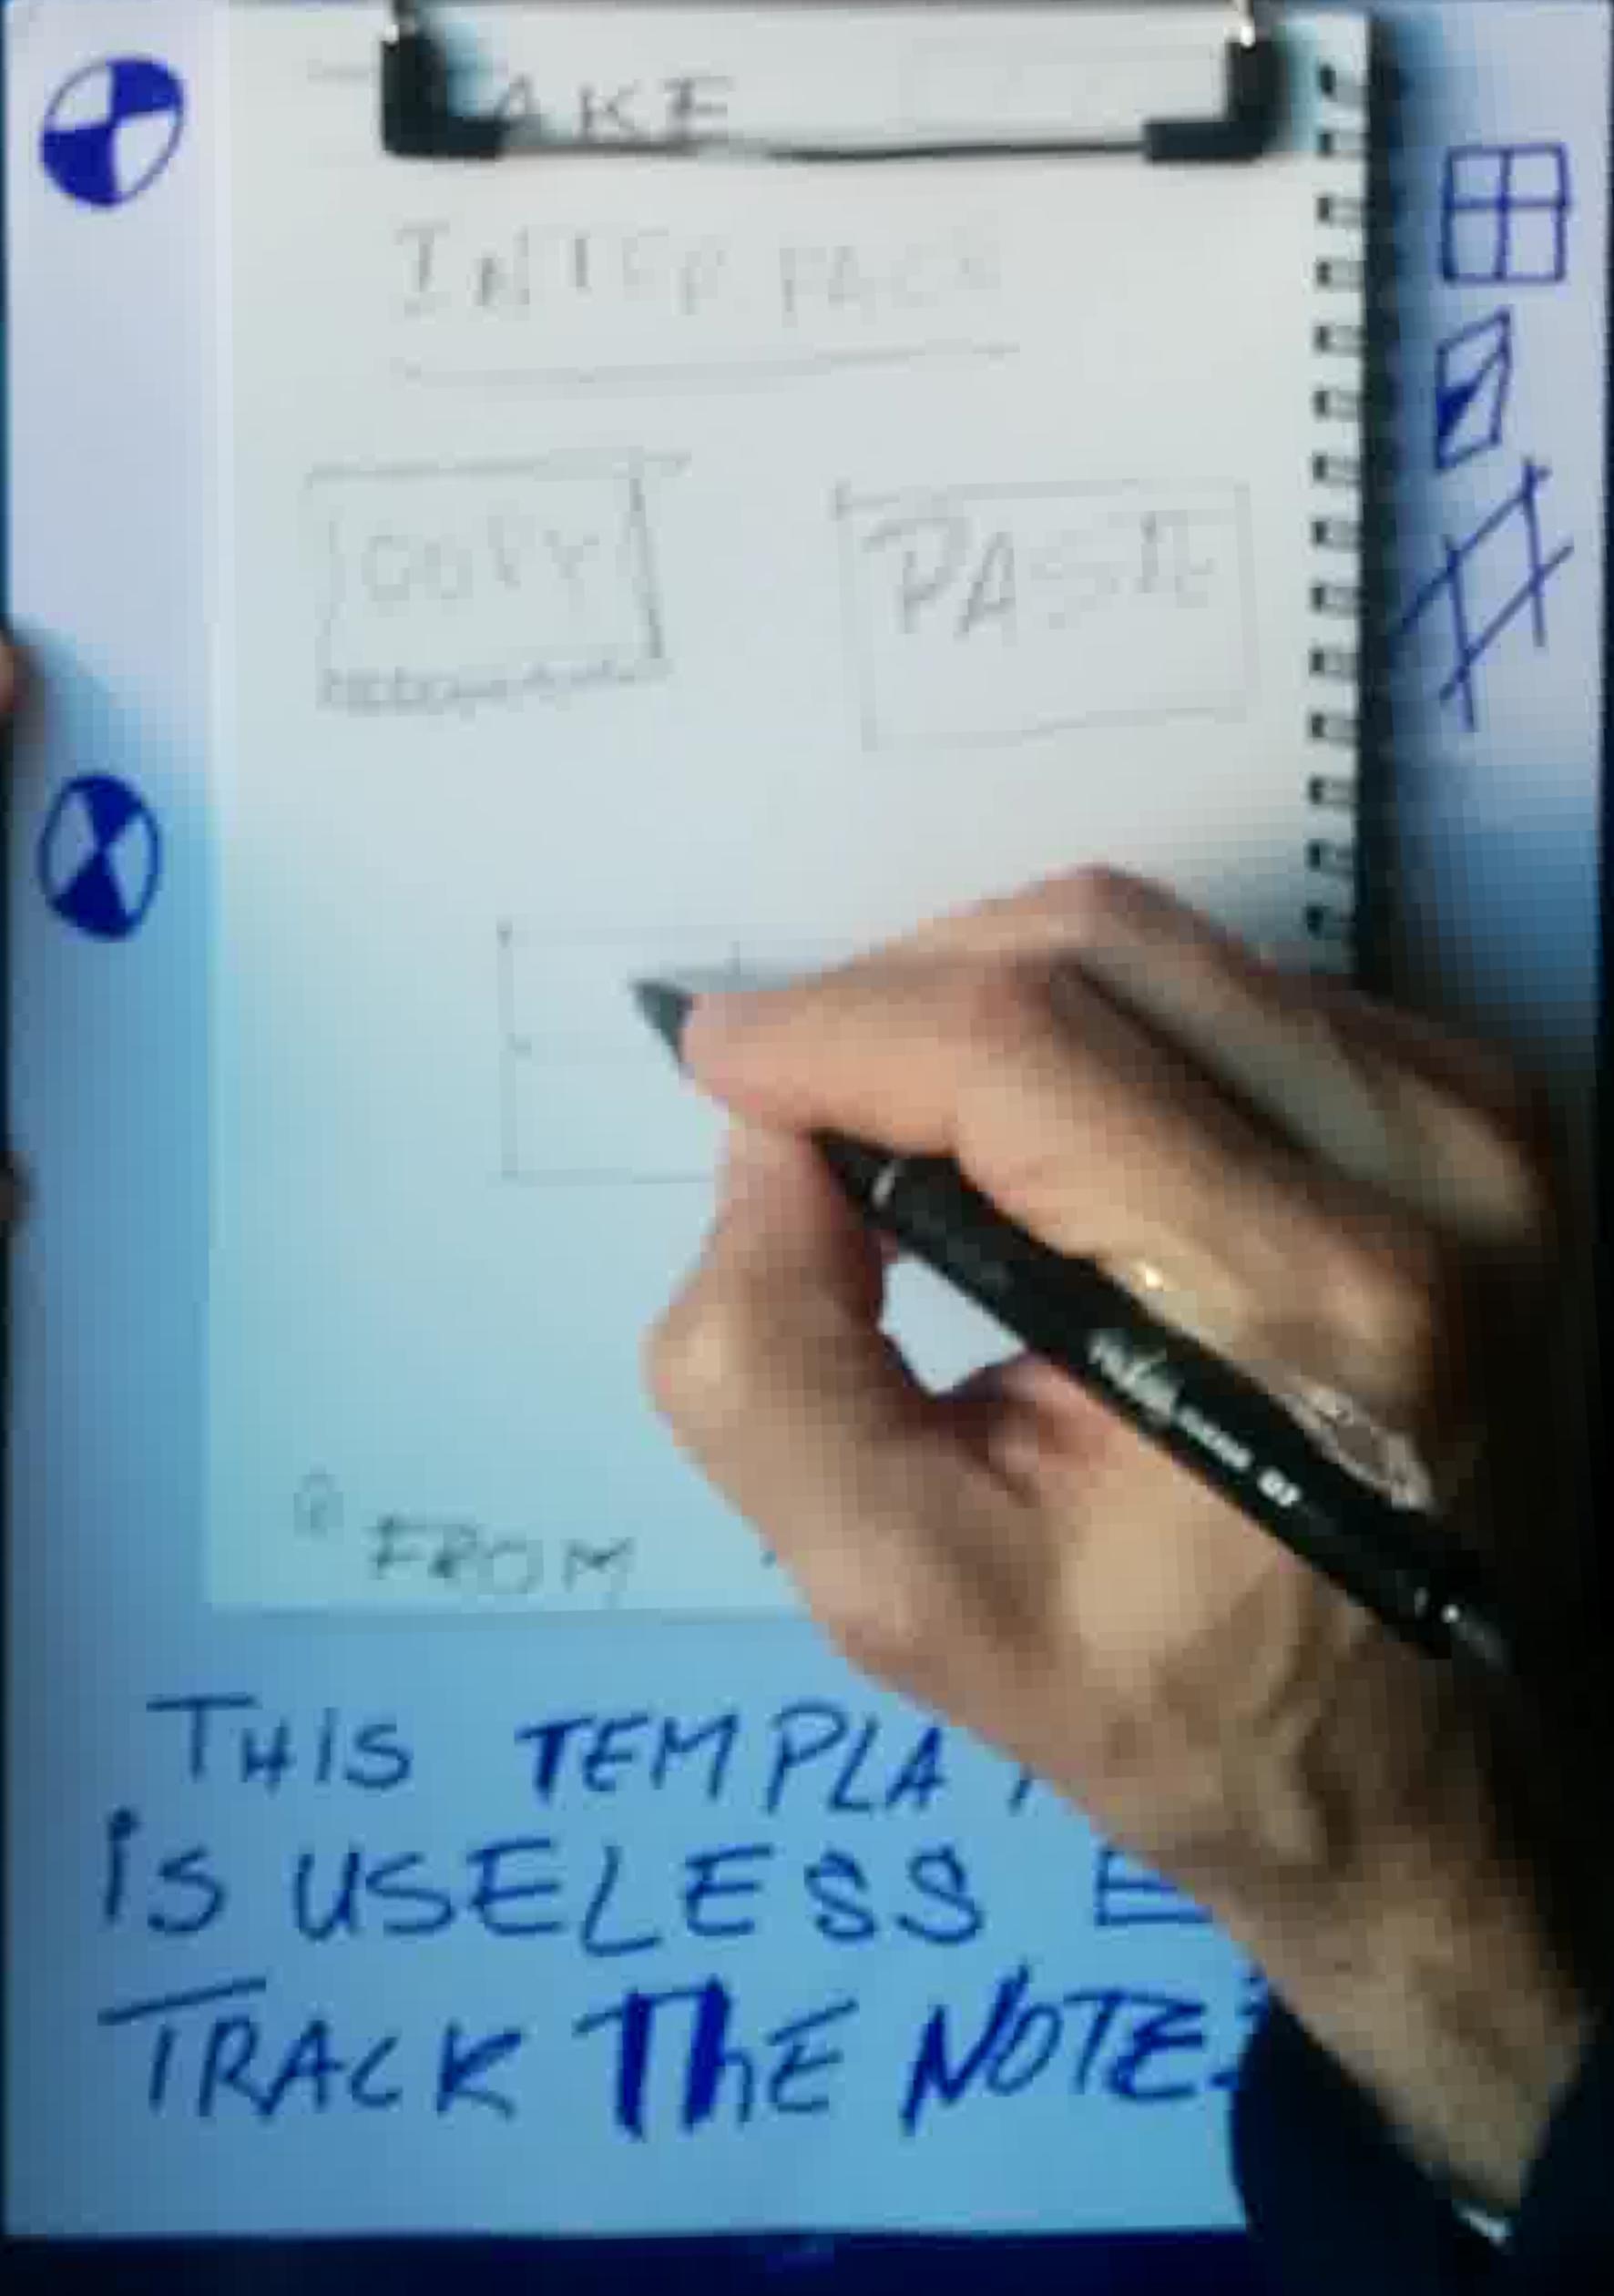 AKE
INTERFACE
COPY PASTE
FROM
THIS TEMPLA
is USELESS
TRACK ThE NOTE